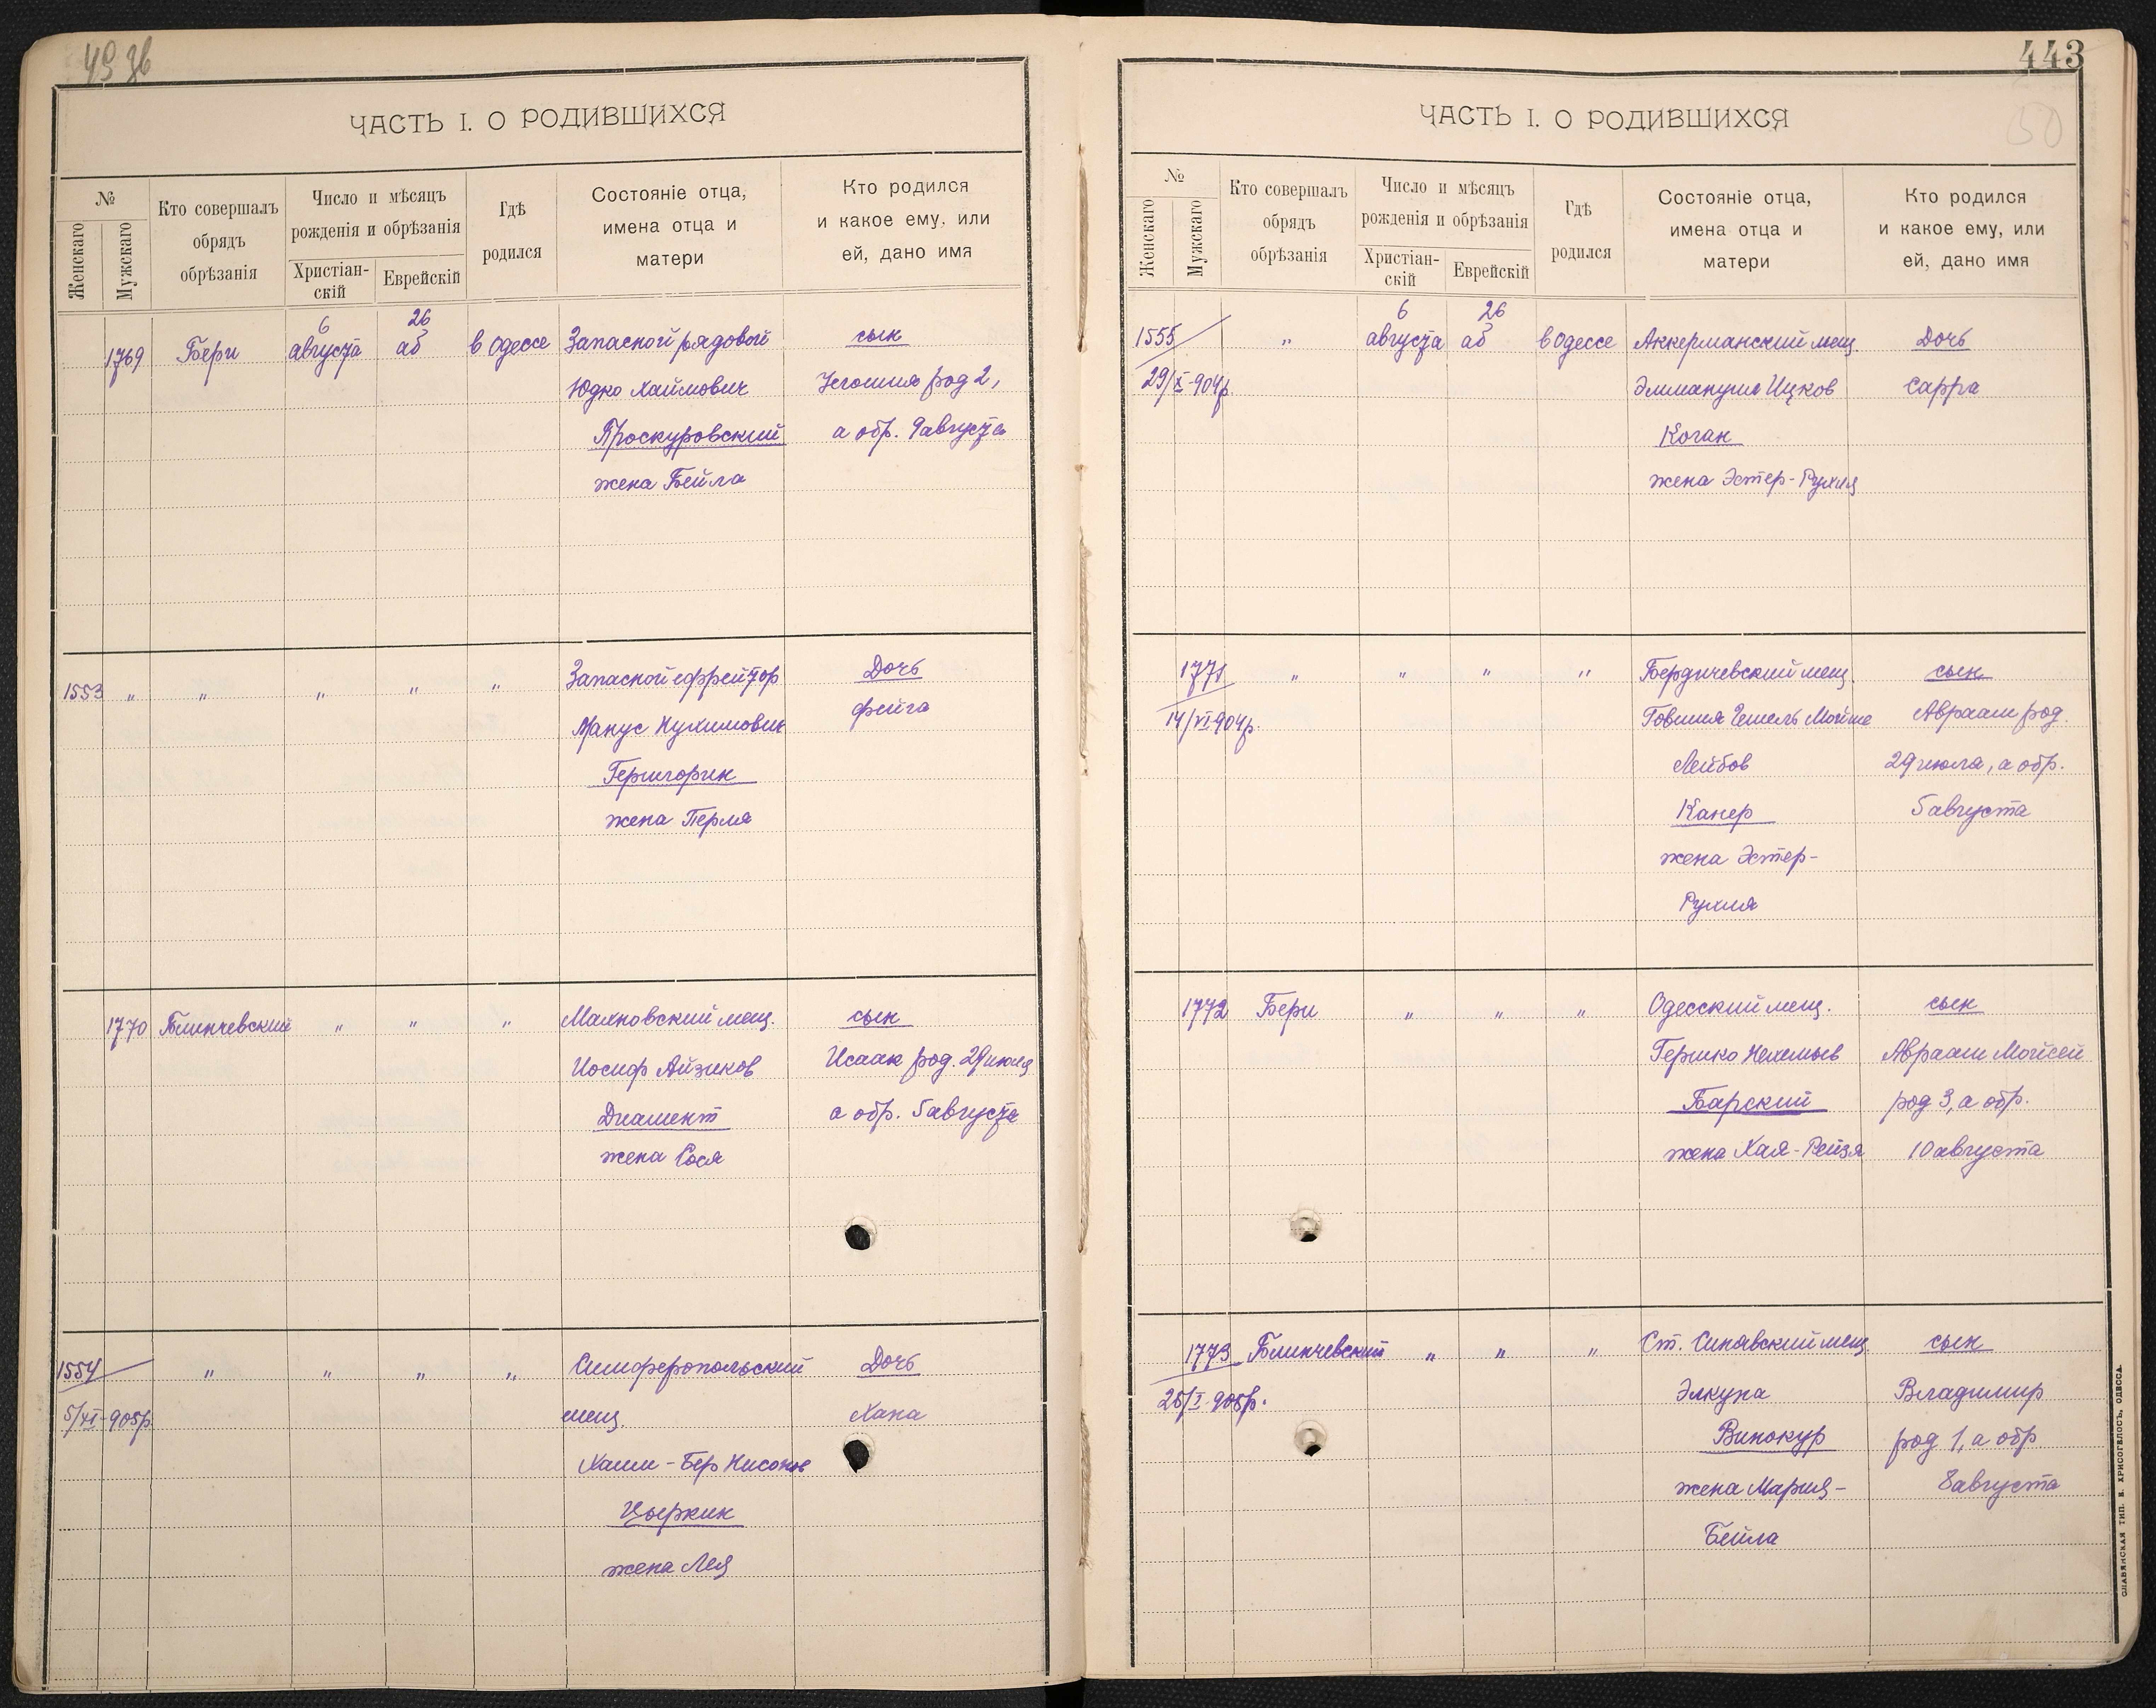 49 зв
ЧАСТЬ I. О РОДИВШИХСЯ
№
Женскаго
Мужскаго
Кто совершалъ
обрядъ
обрѣзанія
Число и мѣсяцъ
рожденія и обрѣзанія
Христіан-
скій
Еврейскій
Гдѣ
родился
Состояніе отца,
имена отца и
матери
Кто родился
и какое ему, или
ей, дано имя
6 26
1769 Бери августа аб в Одессе Запасной рядовой сын
Юдко Хаймович Иегошия род 2,
Проскуровский а обр. 9 августа
жена Бейла
1553 " " " " " Запасной ефрейтор Дочь
Манус Нухимович фейга
Гершгорин
жена Перля
1770 Блинчевский " " " Махновский мещ. сын
Иосиф Айзиков Исаак род. 29 июля
Диамент а обр. 5 августа
жена Сося
1554 " " " " Симферопольский Дочь
5/XI-905р. мещ. Хана
Хаим-Бер Нисонов
Цыркин
жена Лея
443
50
ЧАСТЬ I. О РОДИВШИХСЯ
№
Женскаго
Мужскаго
Кто совершалъ
обрядъ
обрѣзанія
Число и мѣсяцъ
рожденія и обрѣзанія
Христіан-
скій
Еврейскій
Гдѣ
родился
Состояніе отца,
имена отца и
матери
Кто родился
и какое ему, или
ей, дано имя
6 26
1555 " августа аб в Одессе Аккерманский мещ Дочь
29/X-904р. Эммануил Ицков Сарра
Коган
жена Эстер-Рухля
1771 " " " " Бердичевский мещ. сын
14/VI 904р. Говшия Гешель Мойше Авраам род.
Лейбов 29 июля, а обр.
Канер 5 августа
жена Эстер-
Рухля
1772 Бери " " " Одесский мещ. сын
Гершко Нехемыв Авраам Мойсей
Барский род 3, а обр.
жена Хая-Рейзя 10 августа
1773 Блинчевский " " " Ст. Синявский мещ сын
25/I-905р. Элкуна Владимир
Винокур род 1, а обр
жена Мария- 8 августа
Бейла
СЛАВЯНСКАЯ ТИП. Е. ХРИСОГЕЛОСЪ, ОДЕССА.